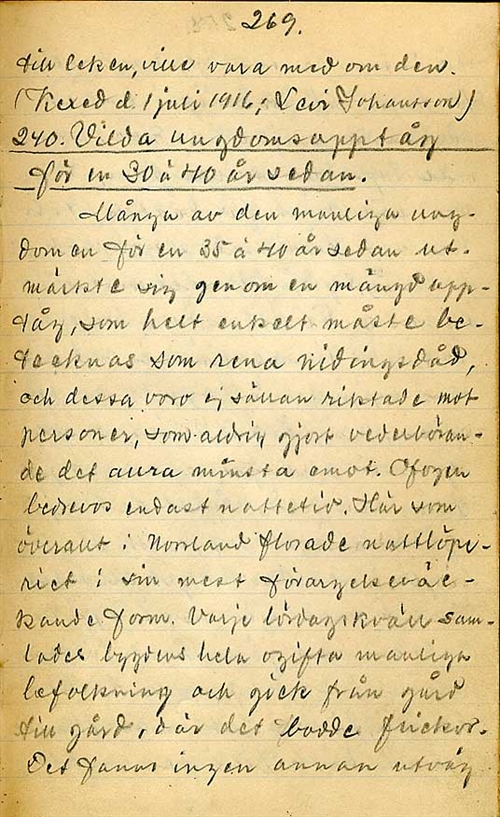 269.
till leken, ville vara med om den.
(Kexed d. 1 juli 1916; Levi Johansson)
240. Vilda ungdomsupptåg
för en 30 à 40 år sedan.
Många av den manliga ung-
domen för en 35 à 40 år sedan ut-
märkte sig genom en mängd upp-
tåg, som helt enkelt måste be-
tecknas som rena nidingsdåd,
och dessa voro ej sällan riktade mot
personer, som aldrig gjort vederböran-
de det allra minsta emot. Ofogen
bedrevos endast nattetid. Här som
överallt i Norrland florade nattlöpe-
riet i sin mest förargelseväc-
kande form. Varje lördagskväll sam-
lades bygdens hela ogifta manliga
befolkning och gick från gård
till gård, där det bodde flickor.
Det fanns ingen annan utväg